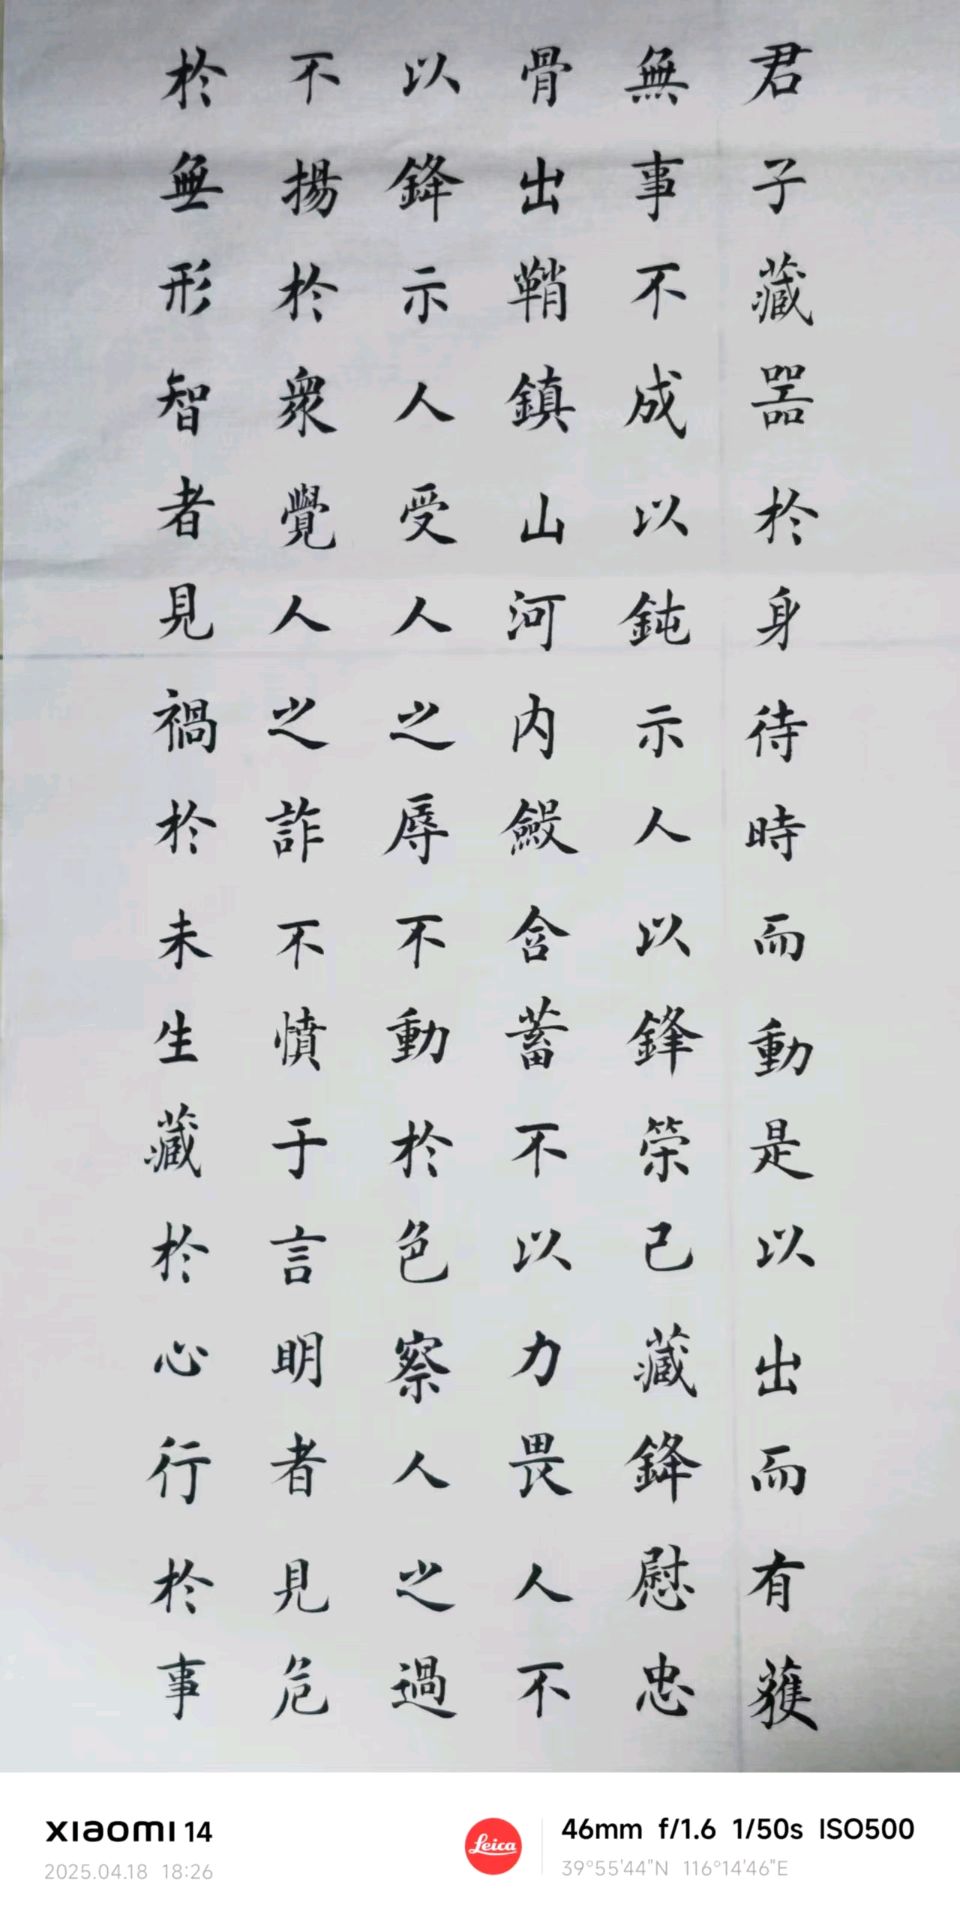 君子藏器於身待時而動是以出而有獲
無事不成以鈍示人以鋒榮己藏鋒慰忠
骨出鞘鎮山河内斂含蓄不以力畏人不
以鋒示人受人之辱不動於色察人之過
不揚於衆覺人之詐不憤于言明者見危
於無形智者見禍於未生藏於心行於事
xiaomi 14
2025.04.18 18:26
Leica
46mm f/1.6 1/50s ISO500
39°55'44"N 116°14'46"E